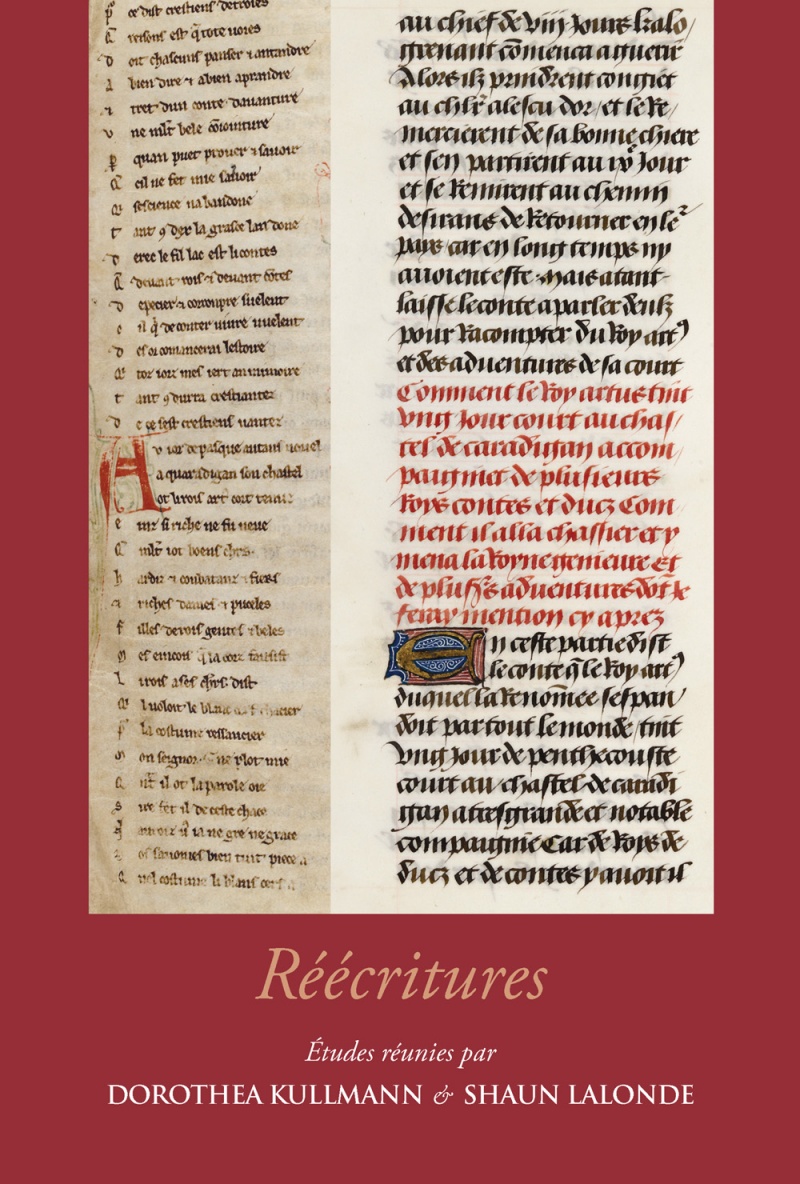 ce dist crestiens de troies
reisons est q̃ tote uoies
D oit chascuns panser ⁊ antandre
A bien dire ⁊ a bien aprandre
⁊ tret dun conte dauanture
V ne ml't bele cōiointure
P quan puet prouer ⁊ sauoir
Q cil ne fet mie sauoir
Q sescience nabandone
t ant ꝯ dex la grasce lan done
D erec le fil lac est li contes
Q deuant rois ⁊ deuant cōtes
D epecier ⁊ corronpre suelent
c il q̃ de conter uiure uuelent
D es or comancerai lestoire
Q tor iorz mes iert an mimoire
t ant ꝯ durra crestiantez
D e ce sest crestiens uantez
A v ior de pasque au tans nouel
a quaradigan son chastel
ot li rois art cort tenue
e inz si riche ne fu ueue
Q ml't iot boens chr̄s
h ardiz ⁊ conbatanz ⁊ fiers
⁊ riches dames ⁊ puceles
f illes de rois gentes ⁊ beles
M es eincois q̃ la cort fausist
L i rois a ses chr̄s dist
Q l uoloit le blanc chacier
p la costume ressaucier
M on seignor G ne plot mie
Q nt il ot la parole oie
S ire fet il de ceste chace
ia ne gre ne grace
os sauomes bien tuit pieca
Q uel costume li blans cers a
au chief de viij Jours kalo
grenant cōmenca a guerir
Alors ilz prindrent congiet
au chlr̄ a lescu dor / et le Re /
mercierent de sa bonne chiere
et sen partirent au Jour
et se Remirent au chemin
desirans de Retourner en le
pays car en long temps ny
auoient este mais atant
laisse le conte a parler deulz
pour Racompter du Roy art
et des aduentures de sa court
Comment le Roy artus tint
vng Jour court au chas /
tel de caradigan accom
paigniet de plusieurs
Roys contes et ducz Com
ment il alla chassier et y
mena la Royne genieure Et
de plus's aduentures dōt Je
feray mention cy aprez
En ceste partie dist
le conte q̃ le Roy art
duquel la Renōmee sespan
doit par tout le monde / tint
vng Jour de penthecouste
court au chastel de caradi
gan a tresgrande et notable
compaignie Car de Roys de
ducz et de contes y auoit il
Réécritures
Études réunies par
DOROTHEA KULLMANN & SHAUN LALONDE